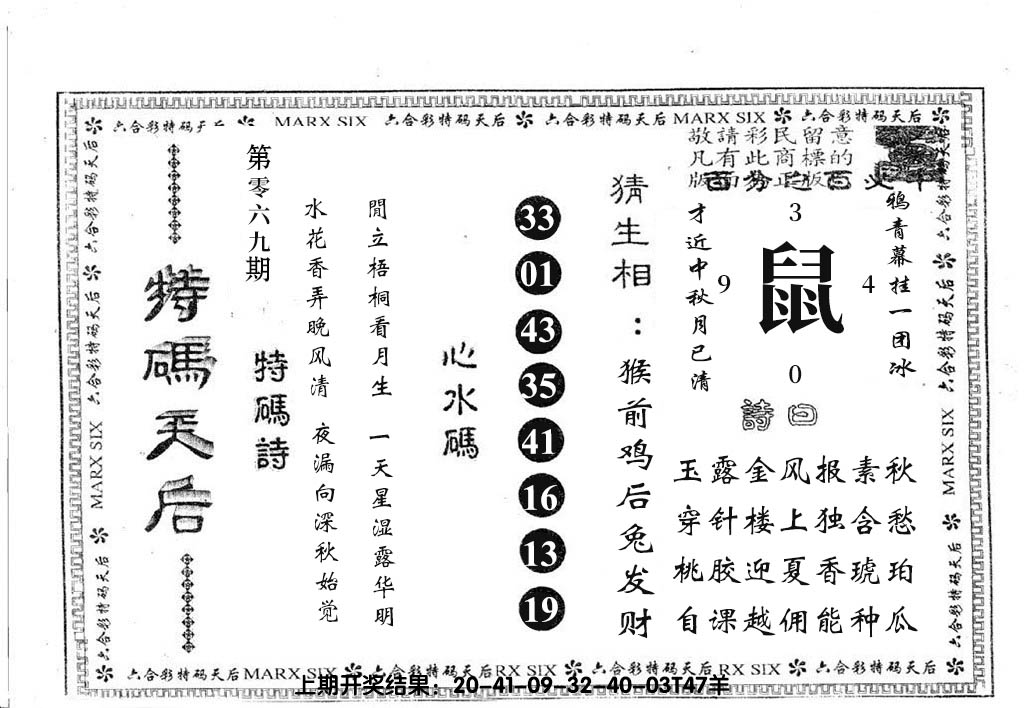 六合彩特码天后 MARX SIX 六合彩特码天后 六合彩特码天后 MARX SIX 六合彩特码天后
特碼天后
第零六九期
特碼詩
水花香弄晚风清 夜漏向深秋始觉
閒立梧桐看月生 一天星湿露华明
心水碼
33
01
43
35
41
16
13
19
猜生相:猴前鸡后兔发财
敬請彩民留意
凡有此商標的
鸦青幕挂一团冰
才近中秋月已清
3
9 鼠 4
0
詩曰
玉露金风报素秋
穿针楼上独含愁
桃胶迎夏香琥珀
自课越佣能种瓜
六合彩特码天后 MARX SIX 六合彩特码天后
六合彩特码天后 MARX SIX 六合彩特码天后
六合彩特码天后MARX SIX 六合彩特码天后RX SIX 六合彩特码天后RX SIX 六合彩特码天后
上期开奖结果：20-41-09-32-40-03T47羊